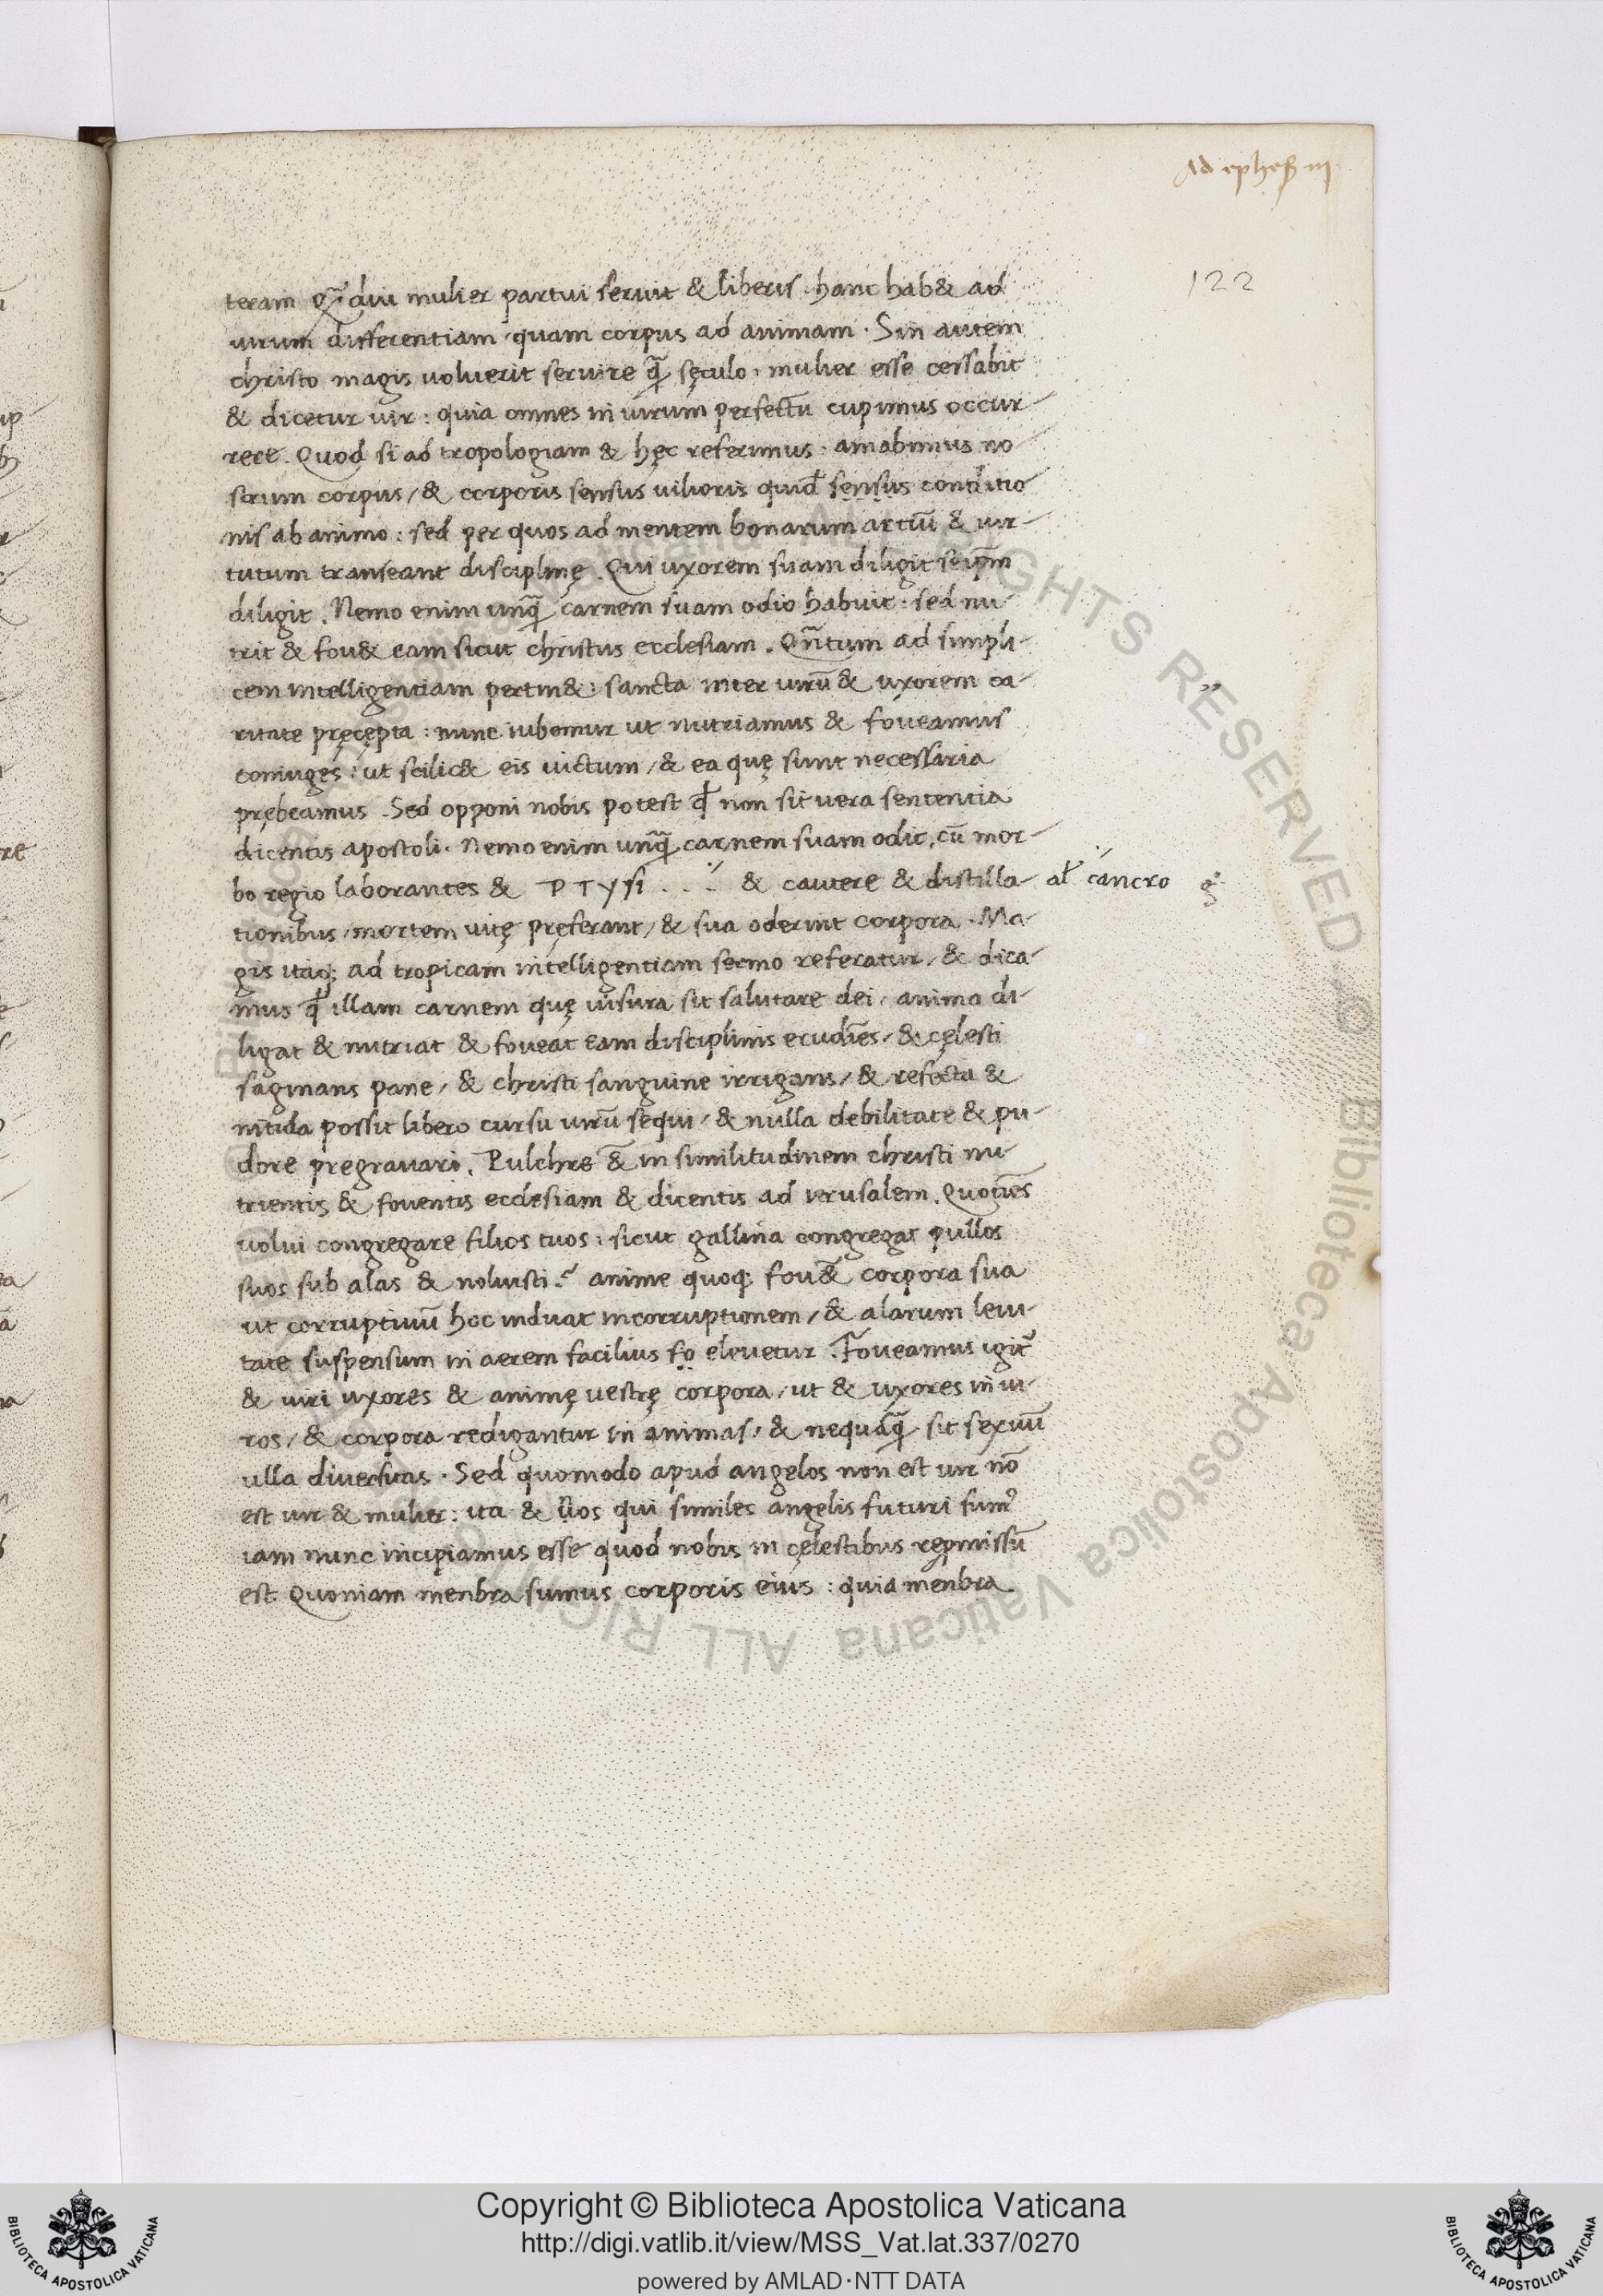 Ad ephes̄ iij
122
teram Qᷓdiu mulier partui seruit & liberis. hanc hab& ad
uirum differentiam quam corpus ad animam. Sin autem
christo magis uoluerit seruire q̄ sęculo, mulier esse cessabit
& dicetur uir: quia omnes in uirum perfectū cupimus occur-
rere. Quod si ad tropologiam & hęc referimus. amabimus no-
strum corpus, & corporis sensus uilioris quid̄ sensus conditio-
nis ab animo: sed per quos ad mentem bonarum artiū & uir-
tutum transeant disciplinę. Qui uxorem suam diligit seip̄m
diligit. Nemo enim unq̄ carnem suam odio habuit: sed nu-
trit & fou& eam sicut christus ecclesiam. Qn̄tum ad simpli-
cem intelligentiam pertin&: sancta inter uirū & uxorem ca-
ritate pręcępta: nunc iubemur ut nutriamus & foueamus
coniuges: ut scilic& eis uictum, & ea quę sunt necessaria
prębeamus. Sed opponi nobis potest qđ non sit uera sententia
dicentis apostoli. Nemo enim unq̄ carnem suam odit, cū mor-
bo regio laborantes & PTYsi . . . & cauere & distilla- al' cancro
tionibus, mortem uitę pręferant, & sua oderint corpora. Ma-
gis itaq; ad tropicam intelligentiam sermo referatur, & dica-
mus qđ illam carnem quę uisura sit salutare dei, anima di-
ligat & nutriat & foueat eam disciplinis erudiēs, & cęlesti
saginans pane, & christi sanguine irrigans, & refecta &
nitida possit libero cursu uirū sequi, & nulla debilitate & pu-
dore pregrauari. Pulchre & in similitudinem christi nu-
trientis & fouentis ecclesiam & dicentis ad ierusalem. Quotiēs
uolui congregare filios tuos: sicut gallina congregat pullos
suos sub alas & noluisti? anime quoq; fou& corpora sua
ut corruptiuū hoc induat incorruptionem, & alarum leui-
tate suspensum in aerem facilius fo eleuetur. Foueamus igit᷑
& uiri uxores & animę uestrę corpora, ut & uxores in ui-
ros, & corpora redigantur in animas, & nequaq̄ sit sexuū
ulla diuersitas. Sed quomodo apud angelos non est uir nō
est uir & mulier: ita & nos qui similes angelis futuri sum᷒
iam nunc incipiamus esse quod nobis in cęlestibus repmissū
est. Quoniam menbra sumus corporis eius: quia menbra
Copyright © Biblioteca Apostolica Vaticana
http://digi.vatlib.it/view/MSS_Vat.lat.337/0270
powered by AMLAD·NTT DATA